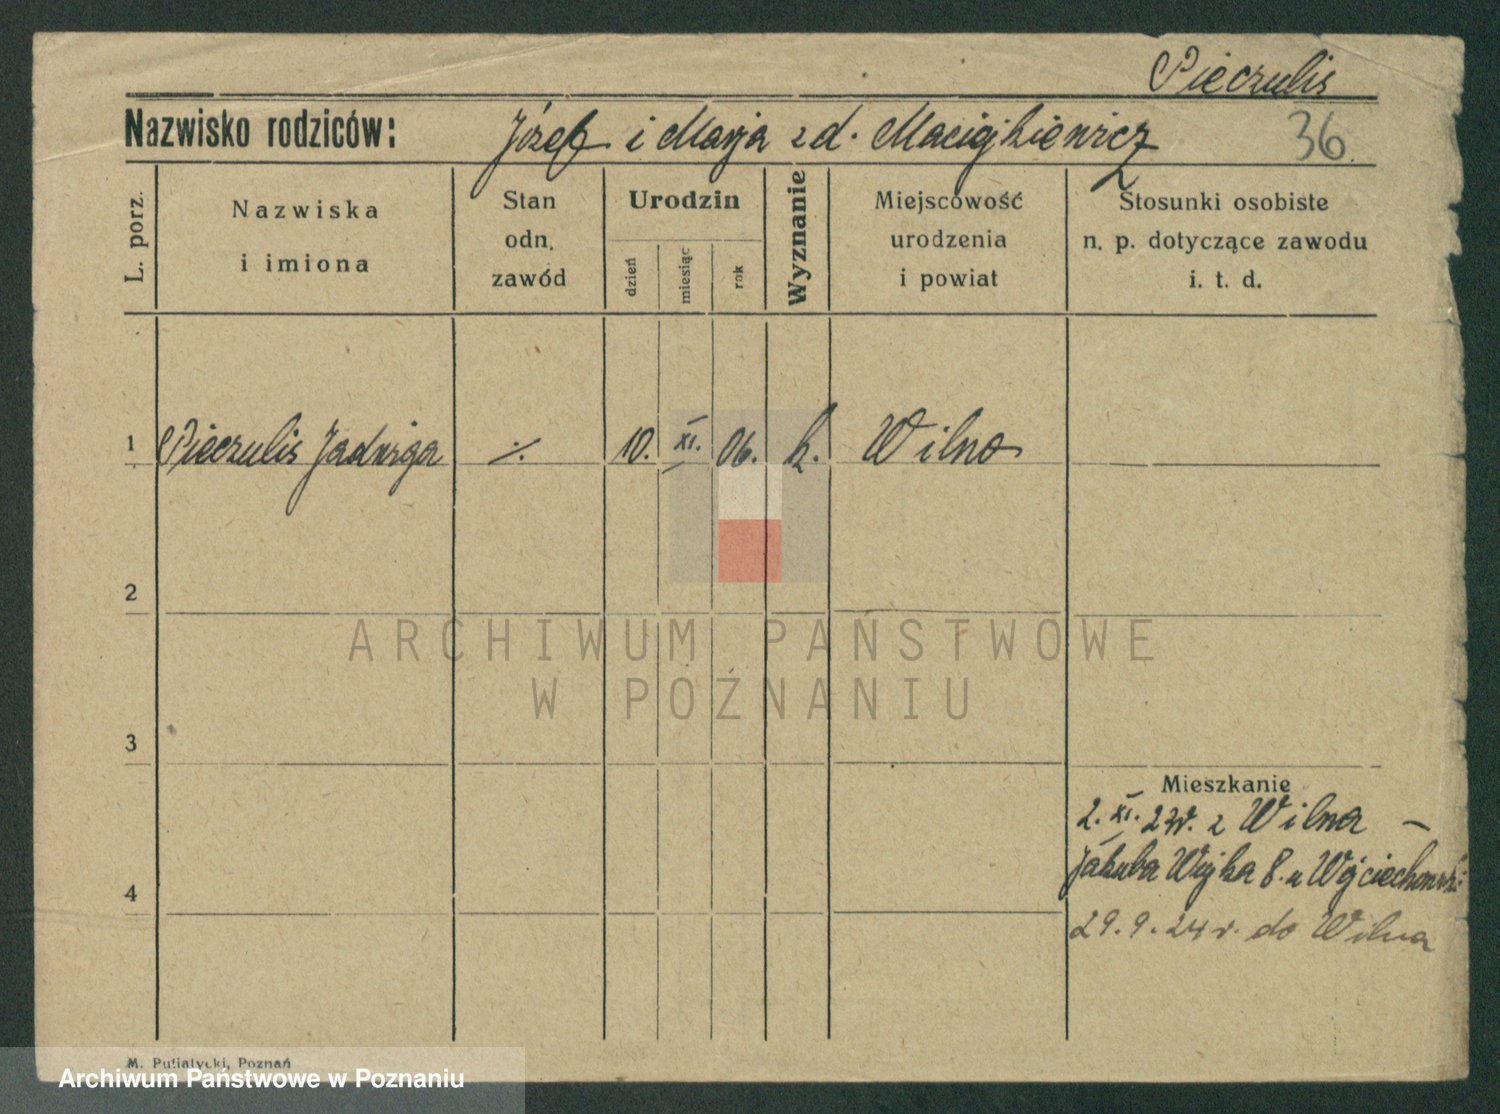 Pieczulis
Nazwisko rodziców: Józef i Marja z d. Maciejkiewicz 36.
L. porz.
Nazwiska
i imiona
Stan
odn.
zawód
Urodzin
dzień
miesiąc
rok
Wyznanie
Miejscowość
urodzenia
i powiat
Stosunki osobiste
n. p. dotyczące zawodu
i. t. d.
1 Pieczulis Jadwiga ./. 10. XI. 06. k. Wilno
2
ARCHIWUM PAŃSTWOWE
W POZNANIU
3
Mieszkanie
2. XI. 23r. z Wilna –
Jakuba Wujka 8. u Wojciechowski
4
29. 9. 24 r. do Wilna
M. Putiatycki, Poznań
Archiwum Państwowe w Poznaniu